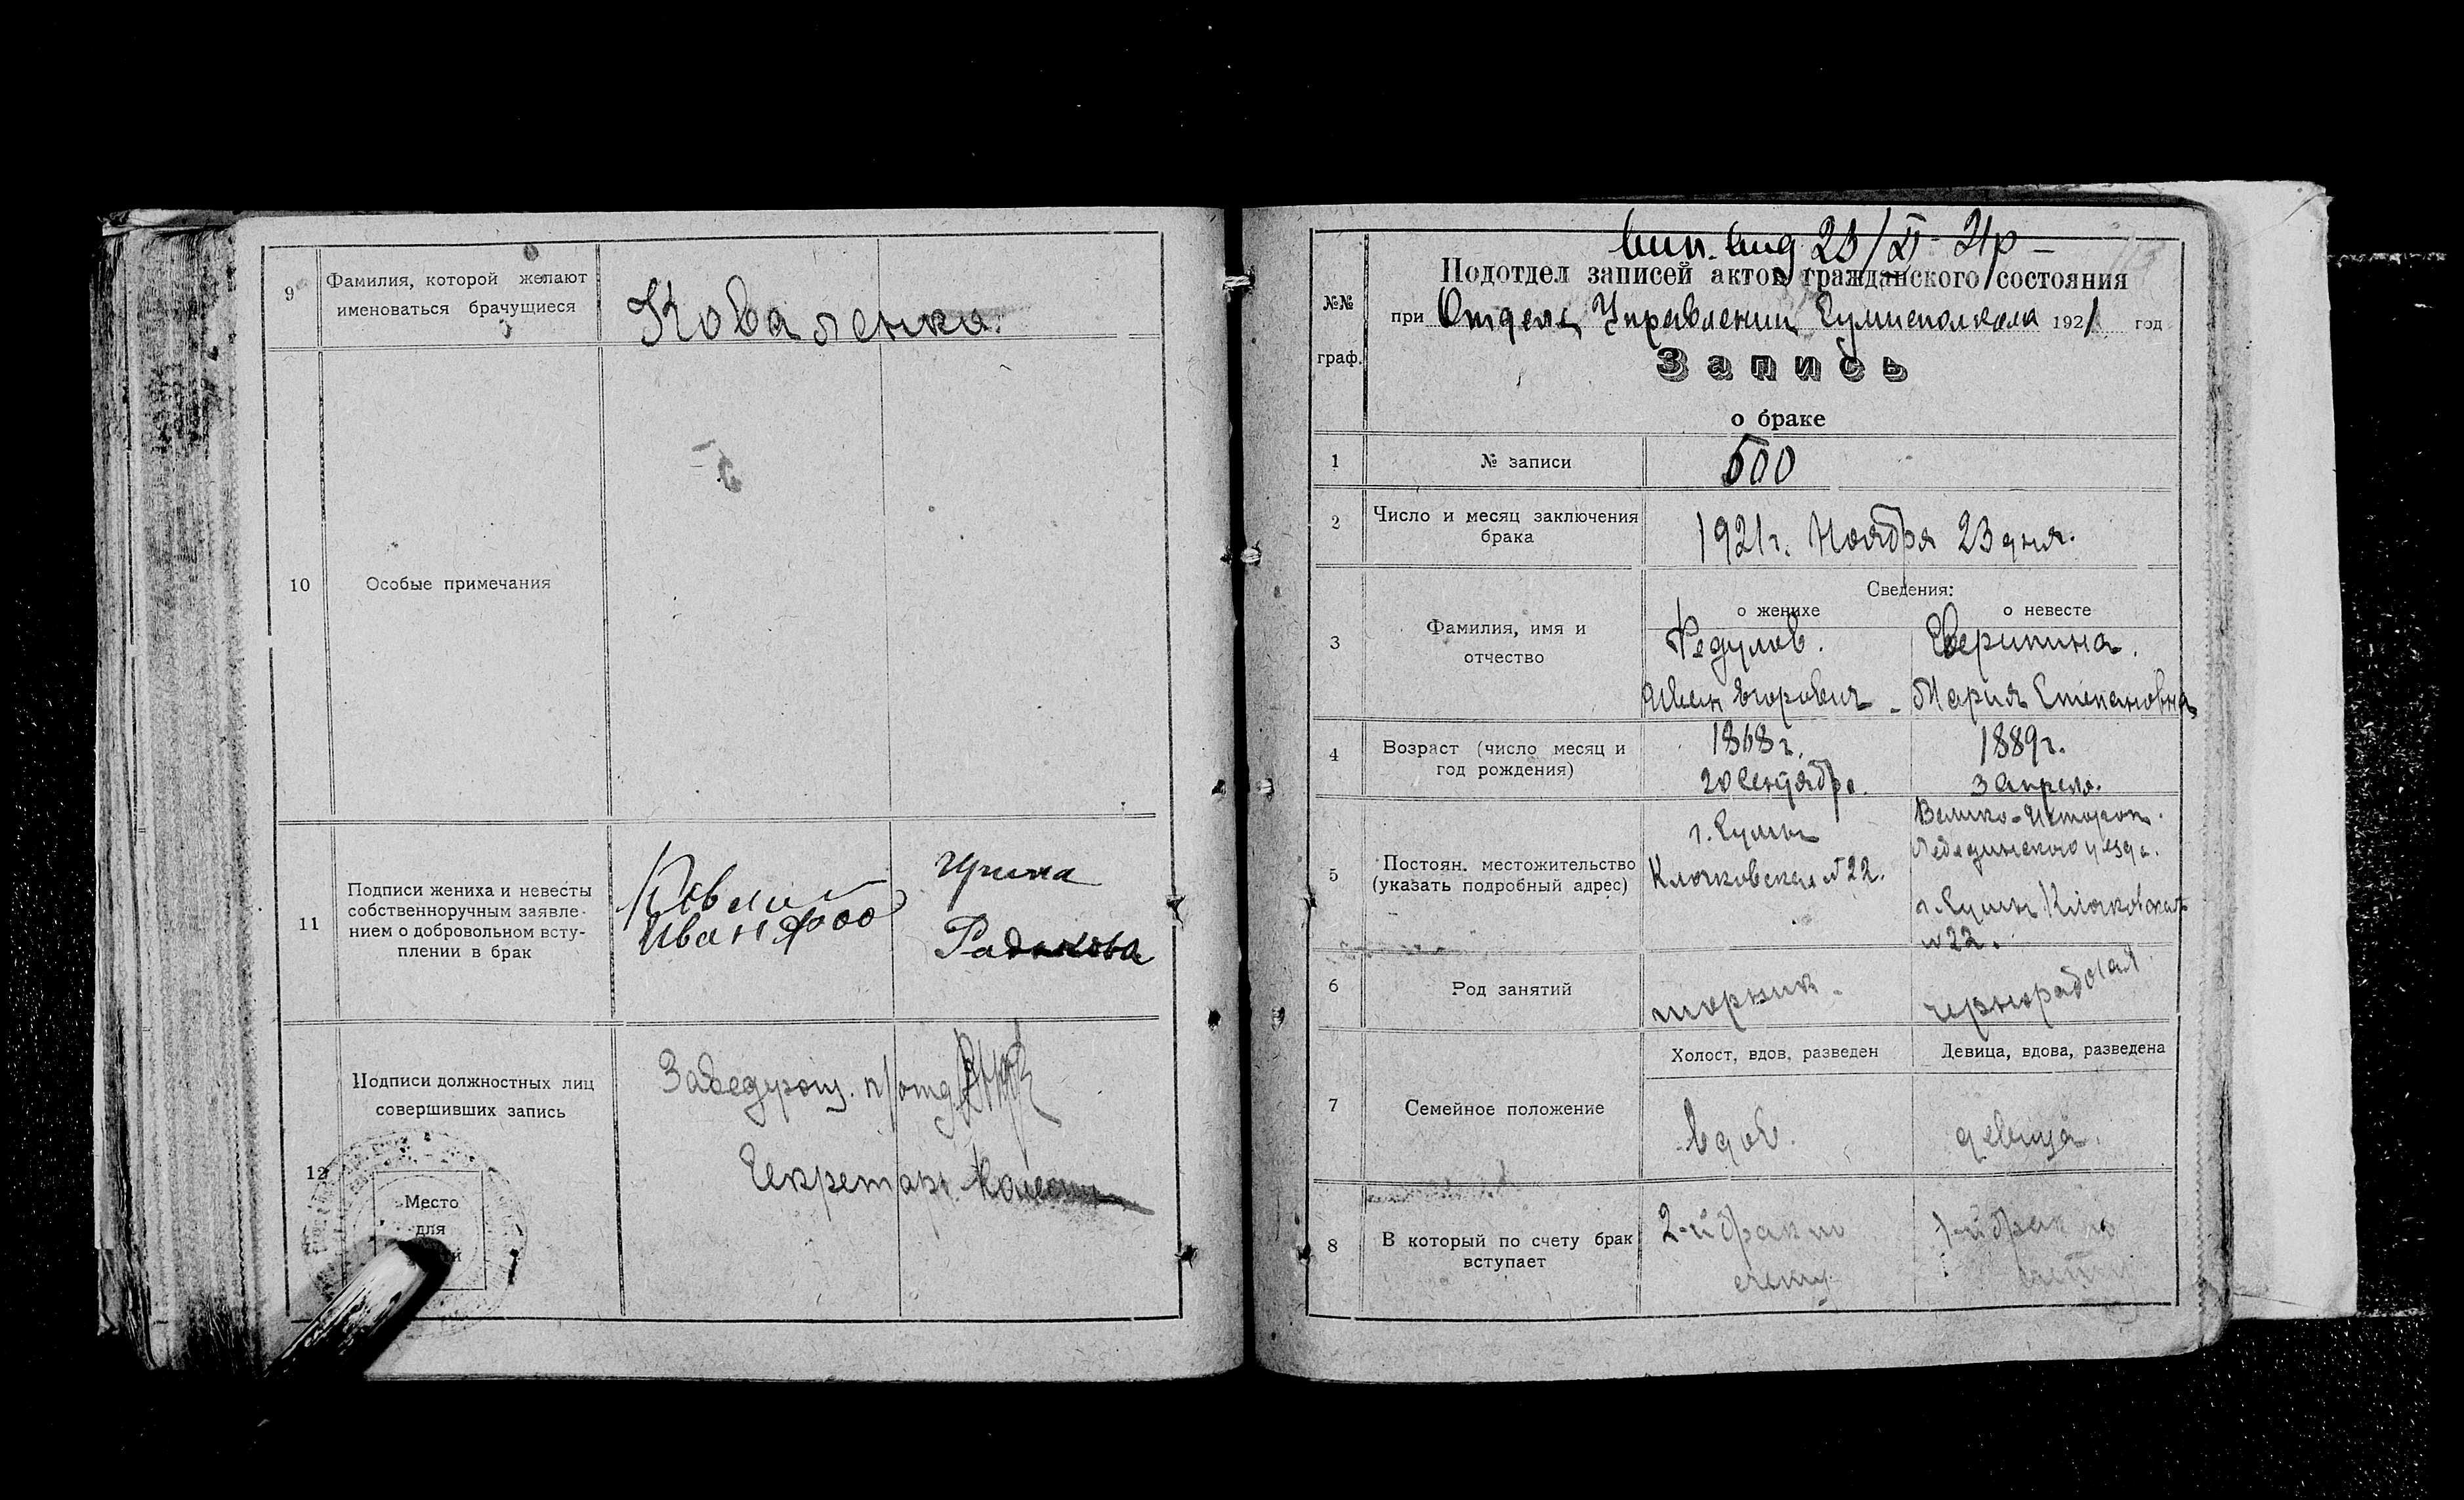 9
Фамилия, которой желают
именоваться брачущиеся
Коваленко.
10
Особые примечания
11
Подписи жениха и невесты
собственноручным заявле-
нием о добровольном всту-
плении в брак
Иван
Ирина
12
Подписи должностных лиц
совершивших запись
Заведующ. п/отд
Секретарь
Место
для
№№
граф.
вид 23/XI - 21р -
Подотдел записей актов гражданского состояния
при Отделе Управления Сумисполкома 1921 год
Запись
о браке
1
№ записи
500
2
Число и месяц заключения
брака
1921 г. Ноября 23 дня.
3
Фамилия, имя и
отчество
Сведения:
о женихе
о невесте
Федулов.
Иван Егорович
Мария Степановна
4
Возраст (число месяц и
год рождения)
1868 г.
20 Сентября.
1889 г.
3 апреля.
5
Постоян. местожительство
(указать подробный адрес)
г. Сумы
Клочковская № 22.
Лебединского уезда.
г. Сумы Клочковская
№ 22.
6
Род занятий
шорник.
чернорабочая
7
Семейное положение
Холост, вдов, разведен
Девица, вдова, разведена
вдов.
девица.
8
В который по счету брак
вступает
2-й брак по
счету
1-й брак по
счету